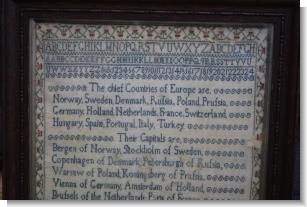 ABCDEFGHIKLMNOPQRSTUVWXYZABCDEFGH
The chief Countries of Europe are,
Norway, Sweden, Denmark, Ruſsia, Poland, Pruſsia,
Germany, Holland, Netherlands, France, Switzerland,
Hungary, Spain, Portugal, Italy, Turkey.
Their Capitals are,
Bergen of Norway, Stockholm of Sweden,
Copenhagen of Denmark, Petersburgh of Ruſsia,
Warsaw of Poland, Koningsberg of Pruſsia,
Vienna of Germany, Amsterdam of Holland,
Bruſsels of the Netherlands, Paris of France